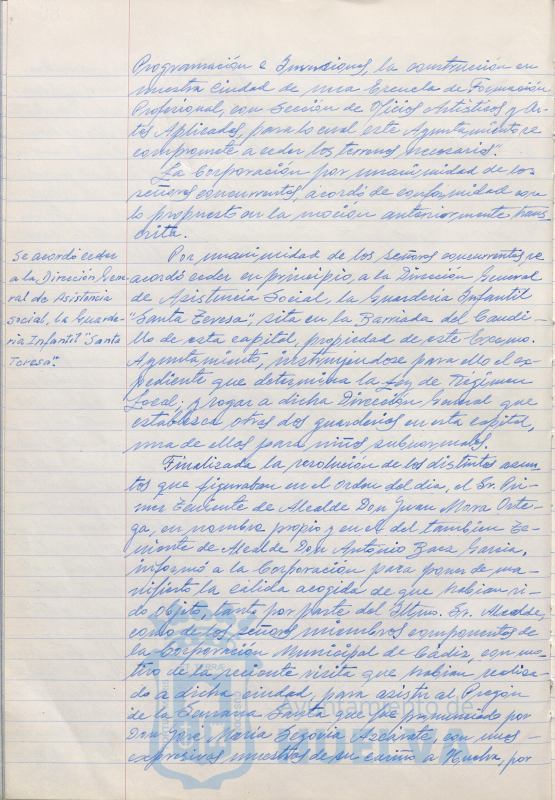 Programación e Inversiones, la construcción en
nuestra ciudad de una Escuela de Formación
Profesional, con Sección de Oficios Artísticos y Ar-
tes Aplicadas, para lo cual este Ayuntamiento se
compromete a ceder los terrenos necesarios".
La Corporación por unanimidad de los
señores concurrentes, acordó de conformidad con
lo propuesto en la moción anteriormente trans-
crita.
Se acordó ceder
a la Dirección Gene-
ral de Asistencia
Social, la Guarde-
ría Infantil "Santa
Teresa".
Por unanimidad de los señores concurrentes se
acordó ceder en principio, a la Dirección General
de Asistencia Social, la Guardería Infantil
"Santa Teresa", sita en la Barriada del Caudi-
llo de esta capital, propiedad de este Excmo.
Ayuntamiento, instruyéndose para ello el ex-
pediente que determina la Ley de Régimen
Local; y rogar a dicha Dirección General que
establezca otras dos guarderías en esta capital,
una de ellas para niños subnormales.
Finalizada la resolución de los distintos asun-
tos que figuraban en el Orden del día, el Sr. Pri-
mer Teniente de Alcalde Don Juan Mora Orte-
ga, en nombre propio y en el del también Te-
niente de Alcalde Don Antonio Baca García,
informó a la Corporación para poner de ma-
nifiesto la cálida acogida de que habían si-
do objeto, tanto por parte del Iltmo. Sr. Alcalde,
como de los señores miembros componentes de
la Corporación Municipal de Cádiz, con mo-
tivo de la reciente visita que habían realiza-
do a dicha ciudad, para asistir al Pregón
de la Semana Santa que fue pronunciado por
Don José María Segovia Azcárate, con unas
expresivas muestras de su cariño a Huelva, por
Ayuntamiento de
HUELVA